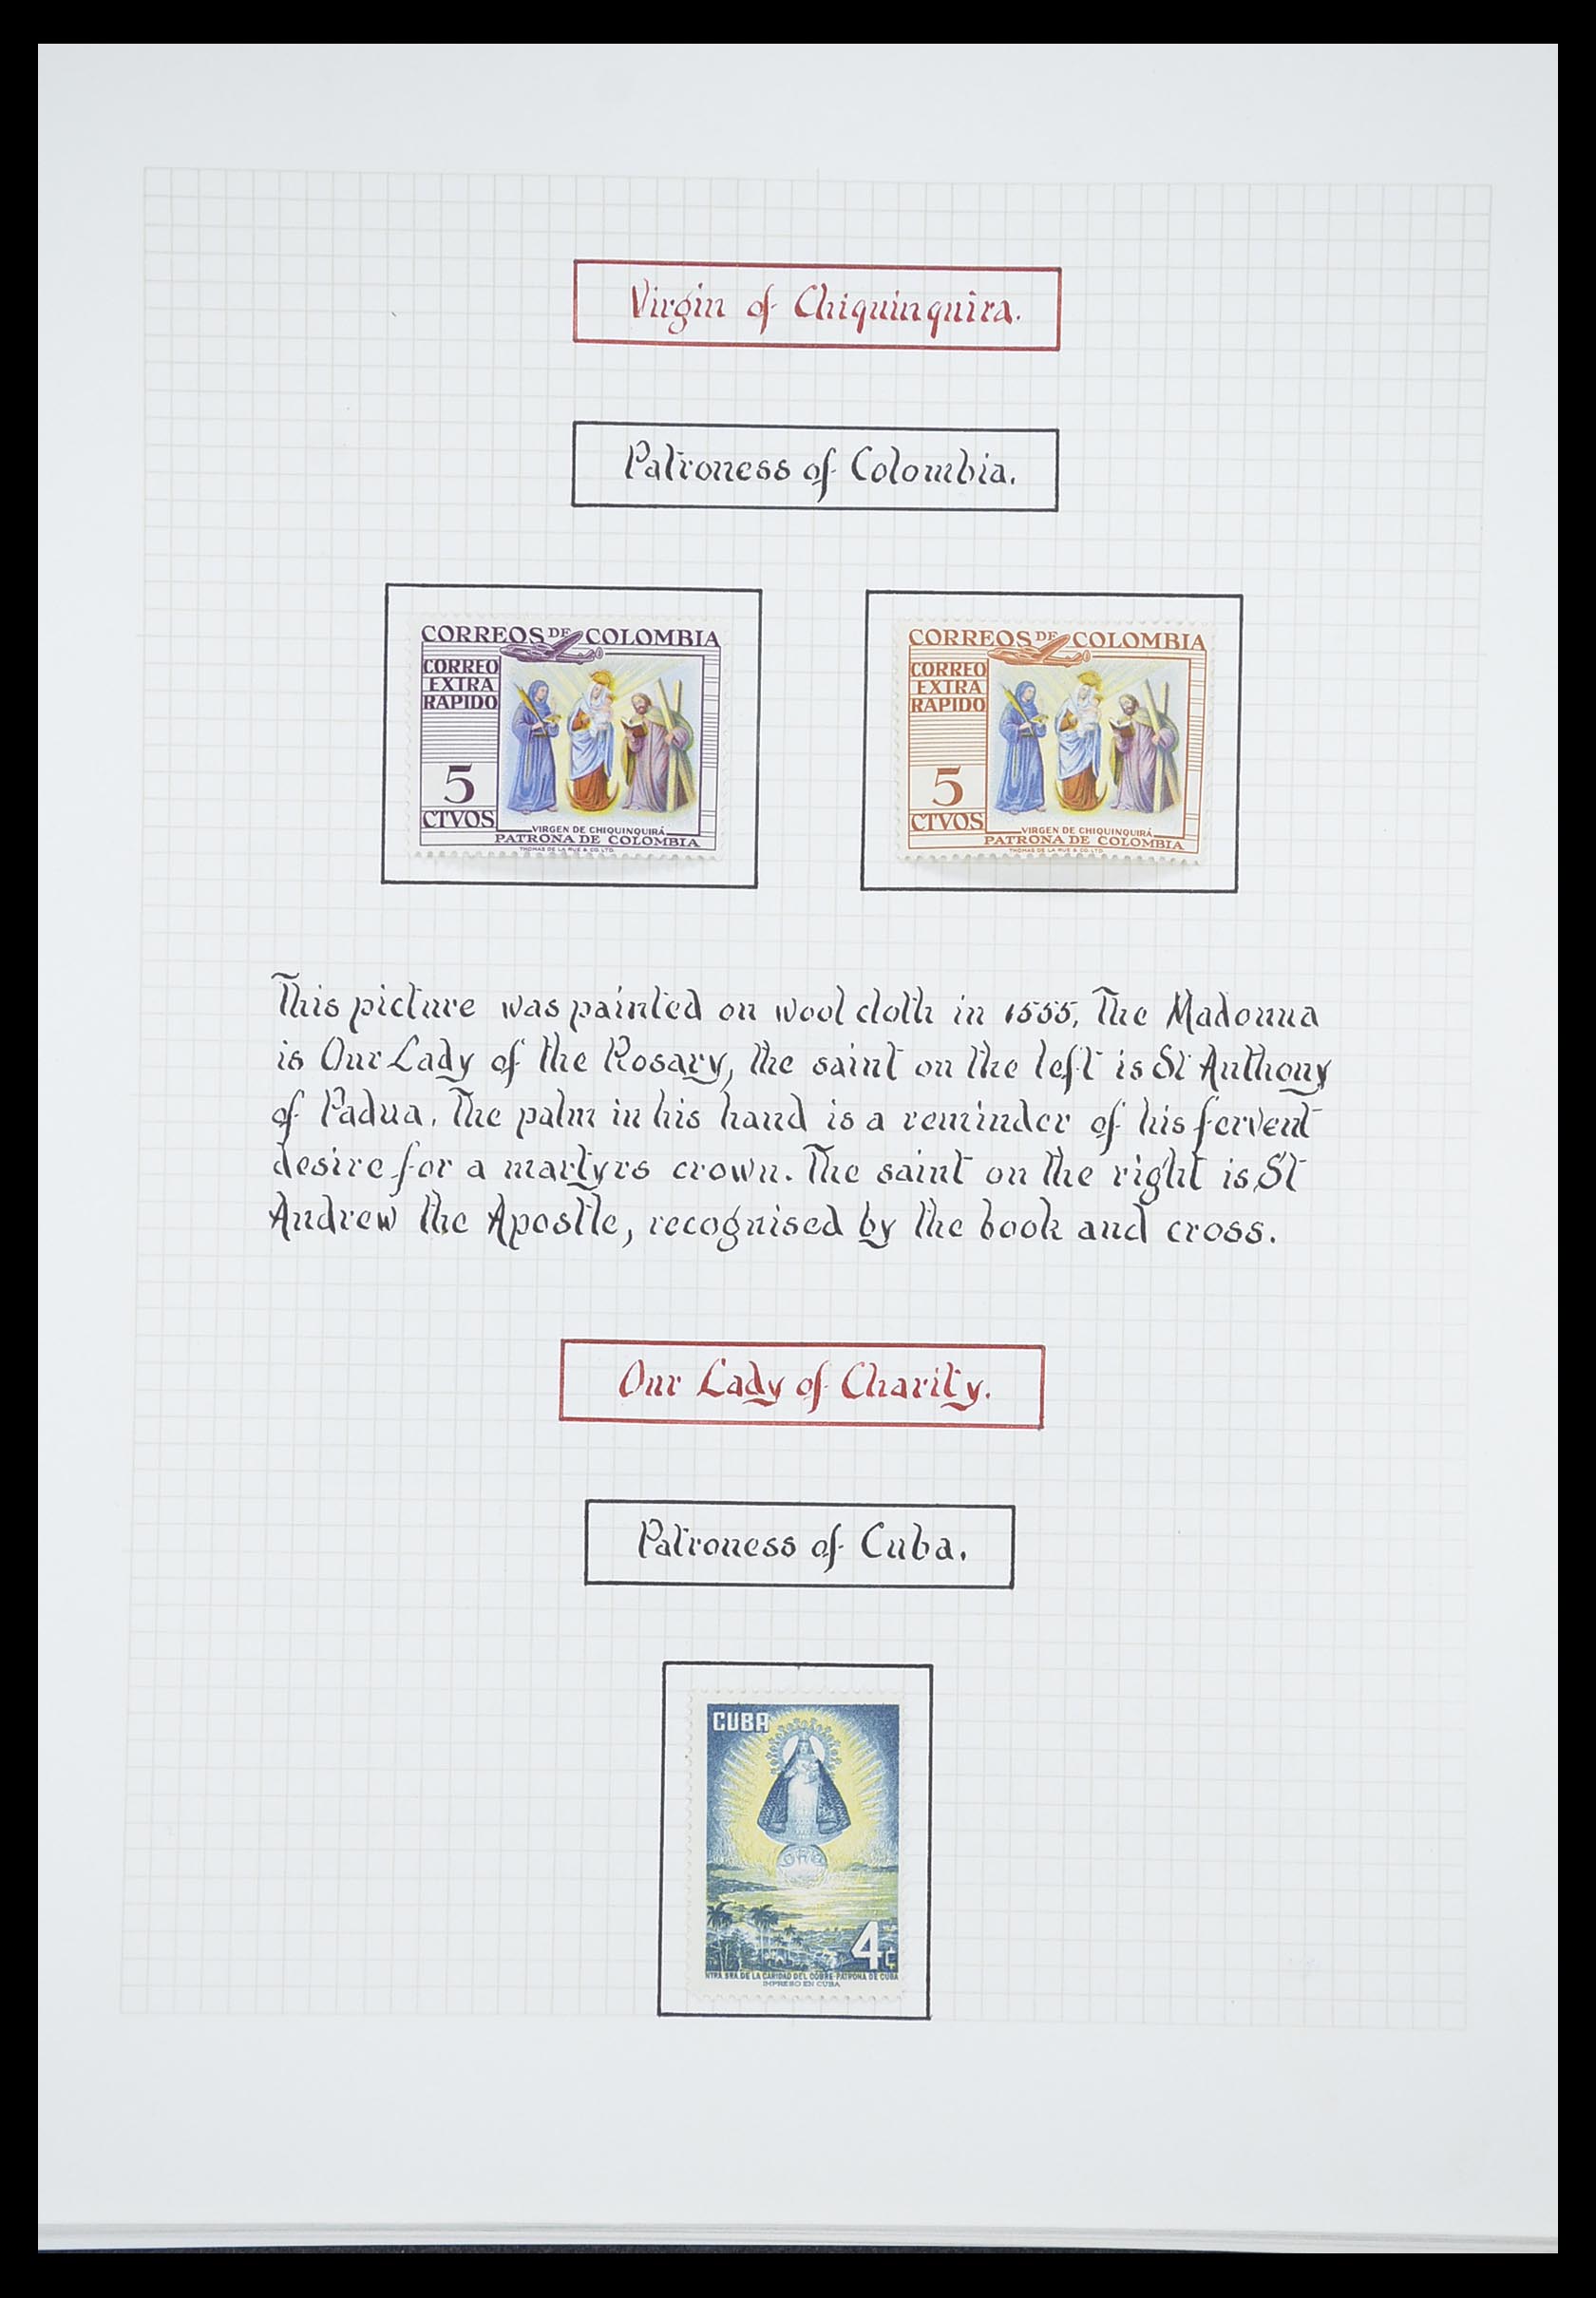 Virgin of Chiquinquira.
Patroness of Colombia.
CORREOS DE COLOMBIA
CORREO
EXTRA
RAPIDO
5
CTVOS
VIRGEN DE CHIQUINQUIRÁ
PATRONA DE COLOMBIA
THOMAS DE LA RUE & CO. LTD.
CORREOS DE COLOMBIA
CORREO
EXTRA
RAPIDO
5
CTVOS
VIRGEN DE CHIQUINQUIRÁ
PATRONA DE COLOMBIA
THOMAS DE LA RUE & CO. LTD.
This picture was painted on wool cloth in 1555. The Madonna
is Our Lady of the Rosary, the saint on the left is St Anthony
of Padua. The palm in his hand is a reminder of his fervent
desire for a martyrs crown. The saint on the right is St
Andrew the Apostle, recognised by the book and cross.
Our Lady of Charity.
Patroness of Cuba.
CUBA
4¢
NTRA. SRA. DE LA CARIDAD DEL COBRE-PATRONA DE CUBA
IMPRESO EN CUBA